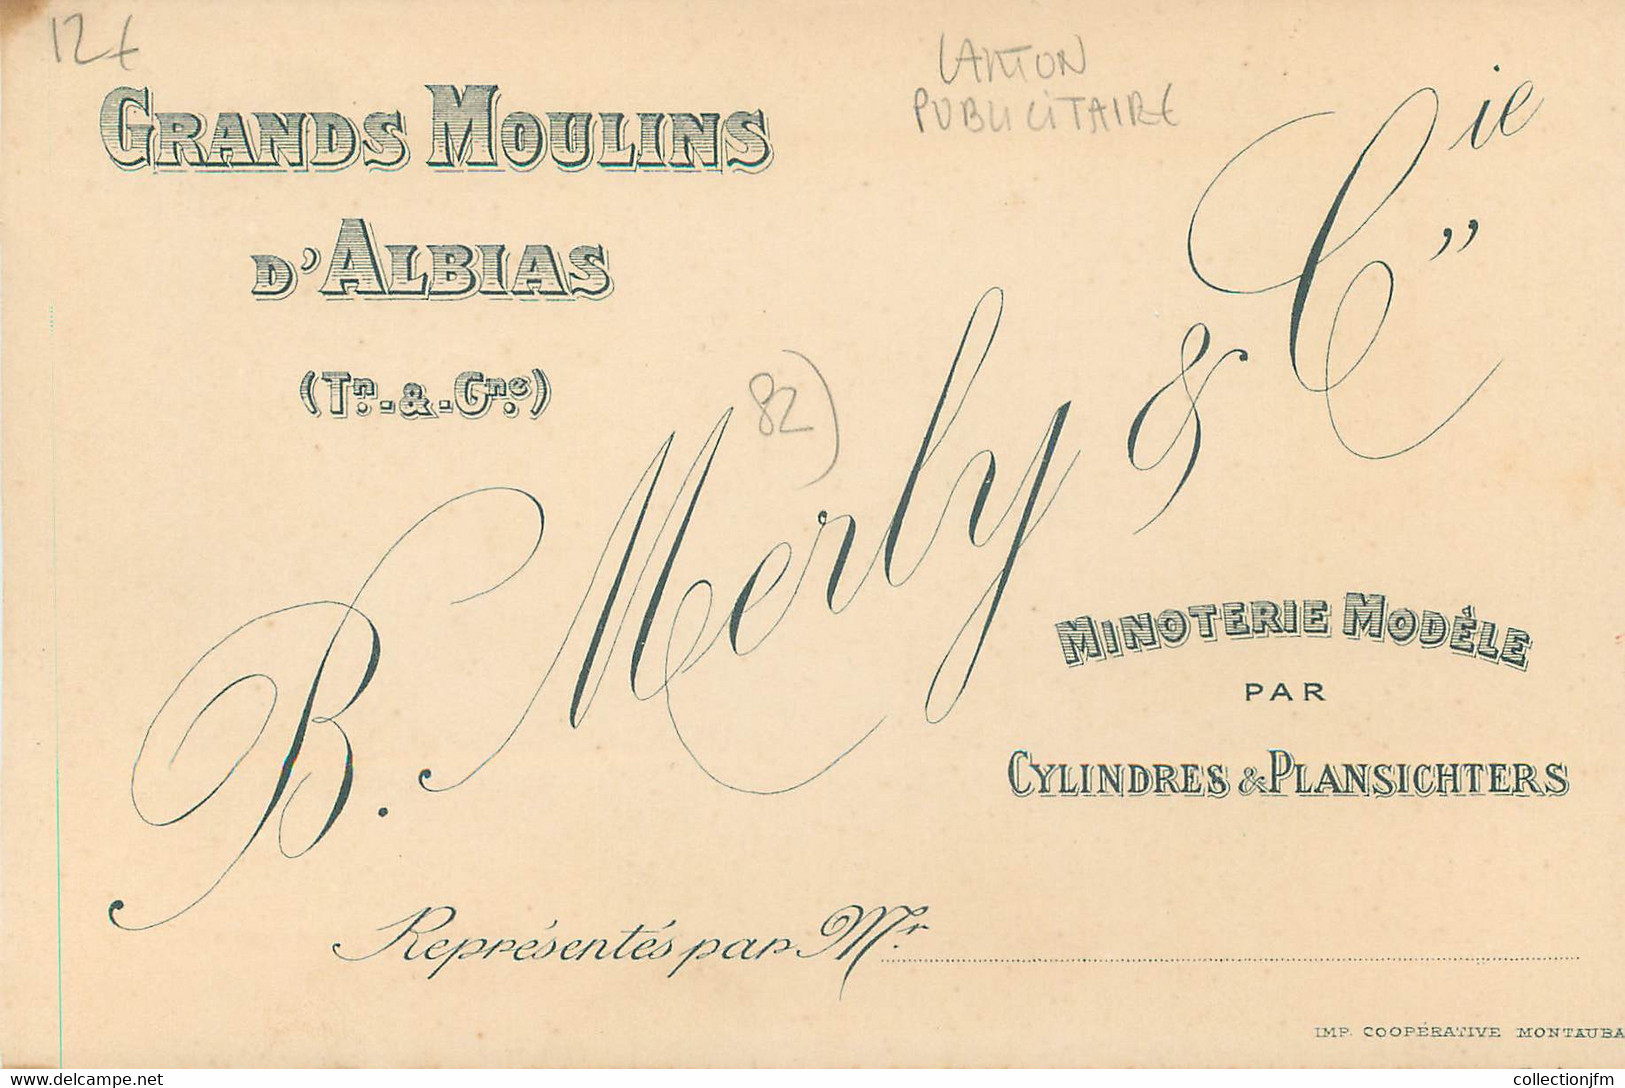 12€
CARTON
PUBLICITAIRE
GRANDS MOULINS
D'ALBIAS
(Tn. & Gne.)
82)
B. Merly & Cie
"
MINOTERIE MODÈLE
PAR
CYLINDRES & PLANSICHTERS
Représentés par Mr
IMP. COOPÉRATIVE MONTAUBA
collectionjfm